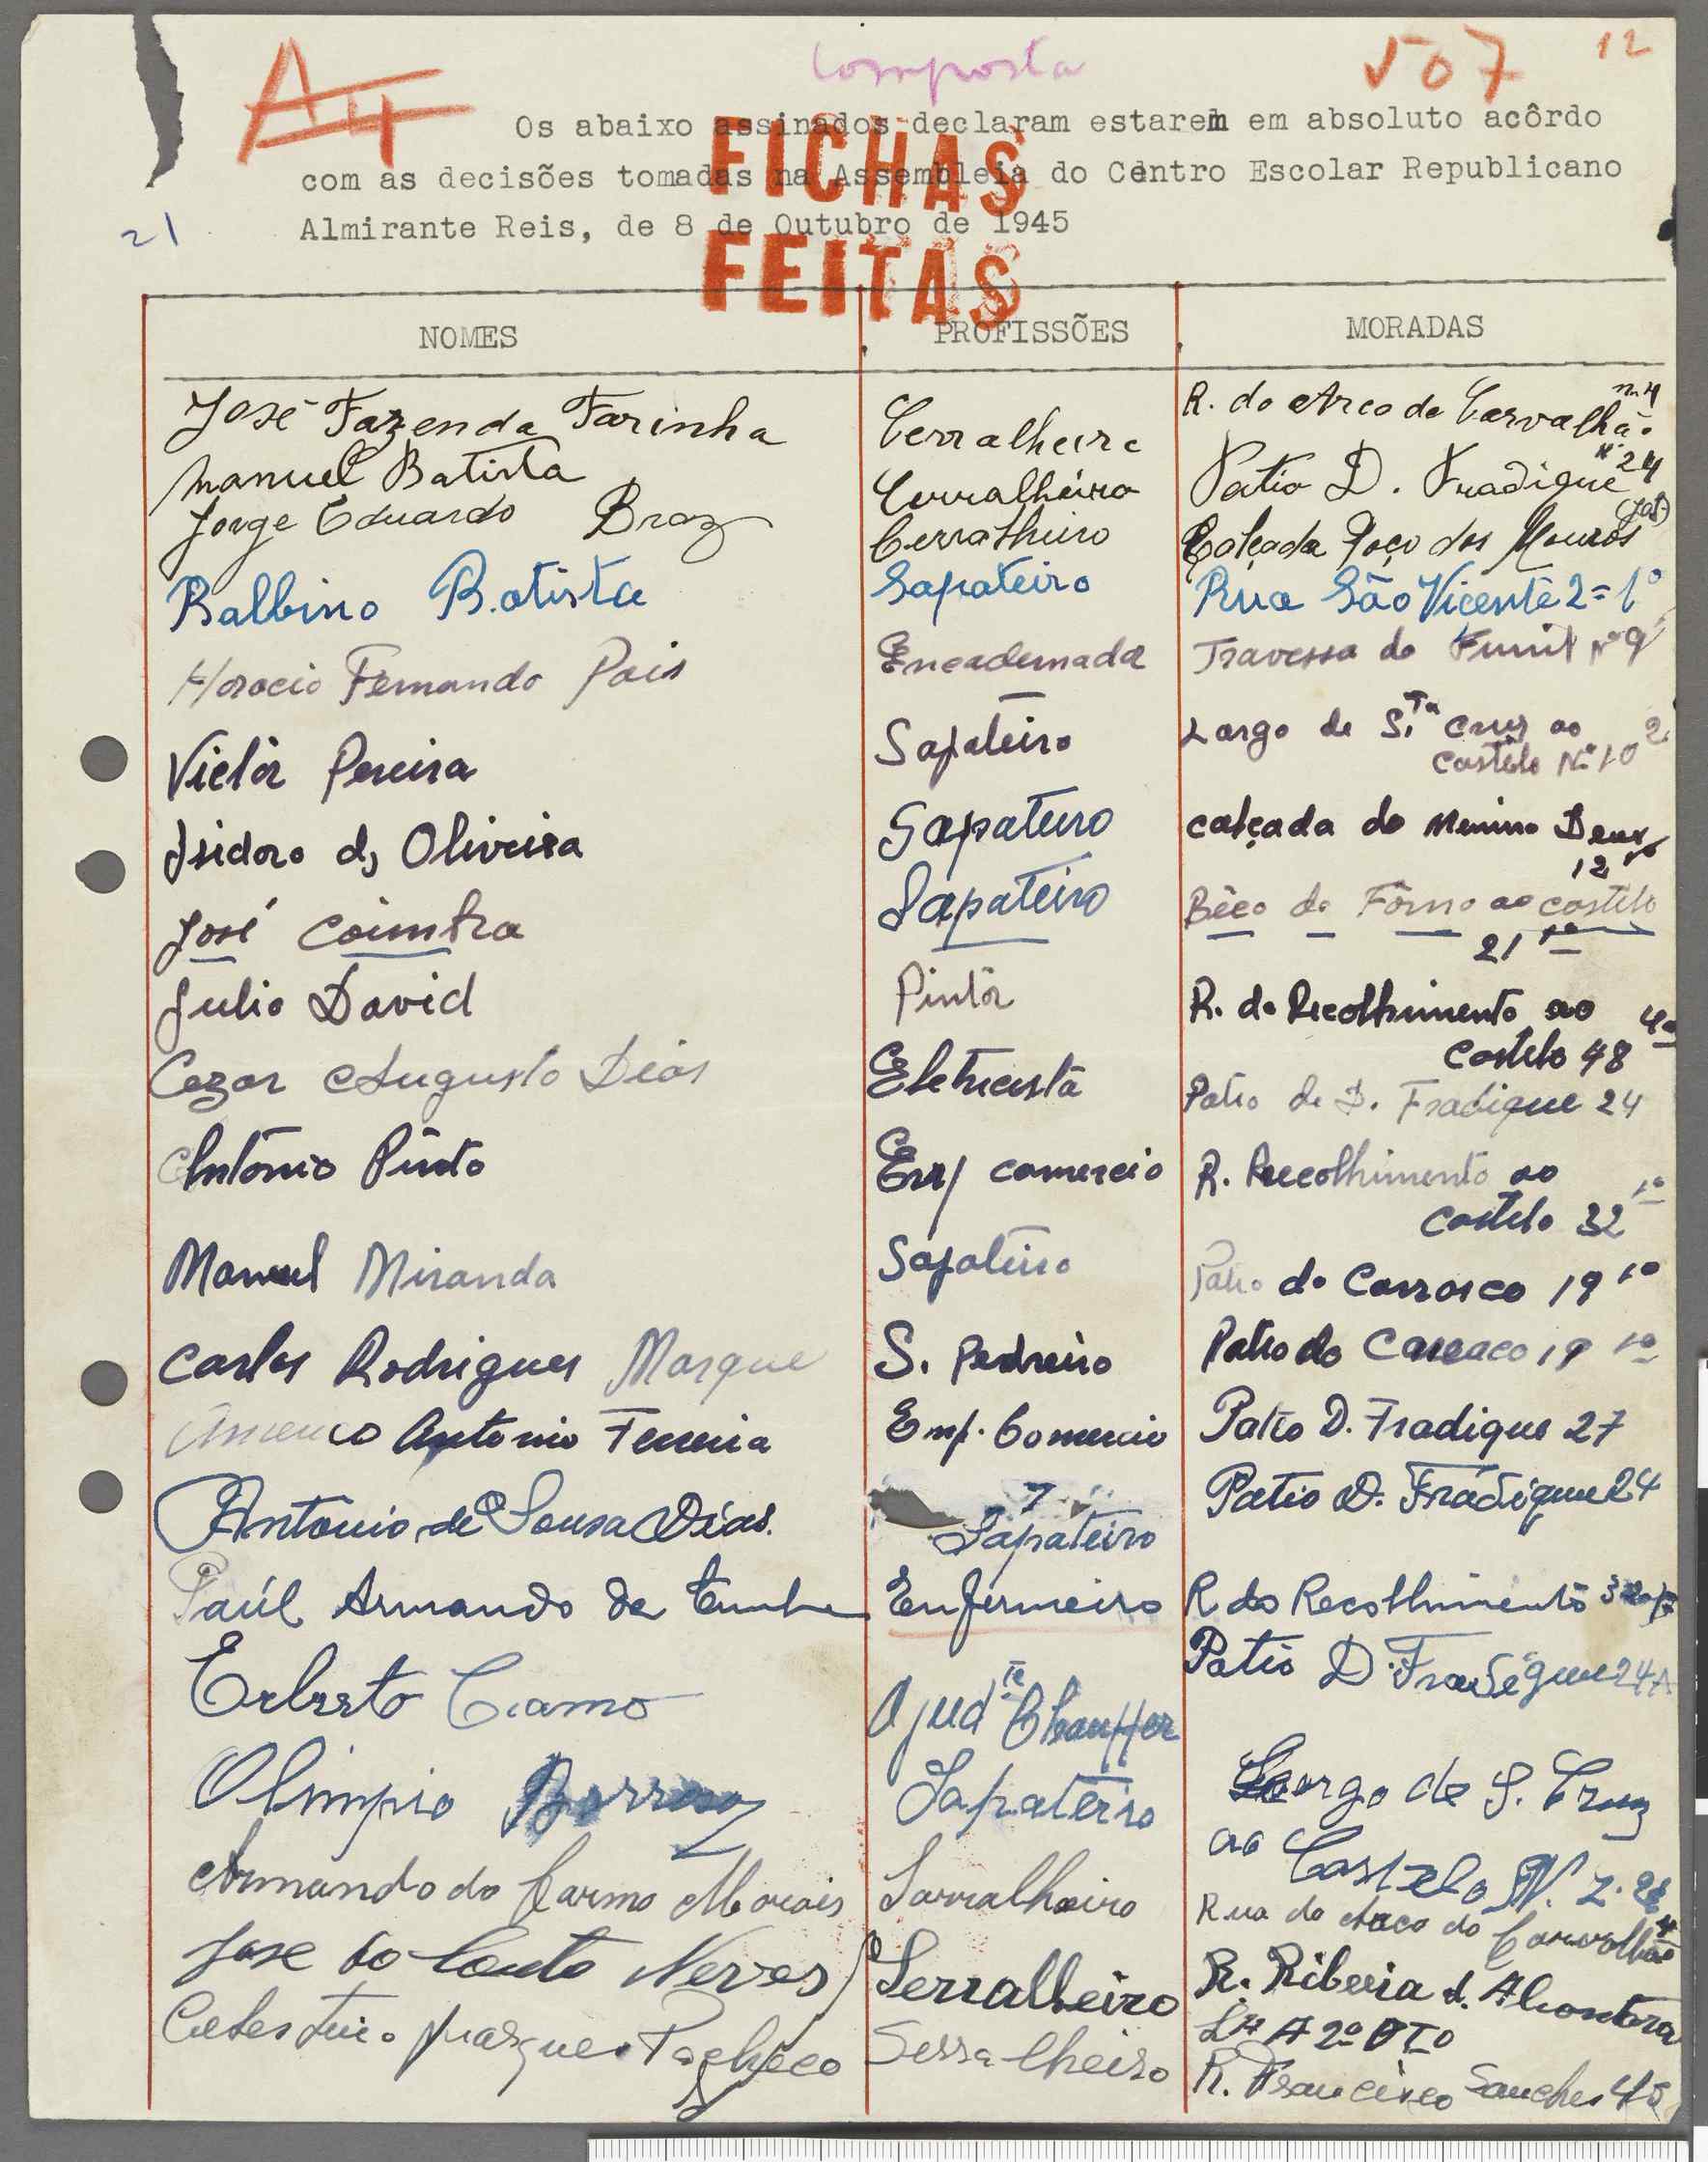 composta
507
12
A
Os abaixo assinados declaram estarem em absoluto acôrdo
com as decisões tomadas na Assembleia do Centro Escolar Republicano
Almirante Reis, de 8 de Outubro de 1945
21
FICHAS
FEITAS
NOMES PROFISSÕES MORADAS
José Fazenda Farinha Cerralheiro R. do Arco do Carvalhão n. 4
Manuel Batista Cerralheiro Patio D. Fradique Nº 24
Jorge Eduardo Braz Cerralheiro Calçada Poço dos Mouros
Balbino Batista Sapateiro Rua São Vicente 2=1º
Horacio Fernando Pais Encadernada Travessa do Funil Nº 9
Victôr Pereira Sapateiro Largo de S.Ta Cruz ao
Castelo Nº 10 2
Isidoro d, Oliveira Sapateiro calçada do Menino Deus
12
José Coimbra Sapateiro Bêco do Fôrno ao castelo
21 1º
Julio David Pintôr R. do Recolhimento ao
Castelo 48 4º
Cezar Augusto Dias Eletricista Patio de D. Fradique 24
António Pinto Emp comercio R. Recolhimento ao
Castelo 32 1º
Manuel Miranda Sapateiro Patio do Carrasco 19 1º
Carlos Rodrigues Marque S. Pedreiro Patio do Carraco 19 1º
Americo Antonio Ferreira Emp. Comercio Patio D. Fradique 27
António de Sousa Dias. Sapateiro Patio D. Fradique 24
Paúl Armando da Cunha Enfermeiro R do Recolhimento
Erberto Cramo Ajudte Chauffer Patio D. Fradique 24 A
Olimpio Sapateiro Largo de S. Cruz
ao Castelo N. 2.
Armando do Carmo Morais Sarralheiro Rua do Arco do Carvalhão 4
Jose do Couto Neves Serralheiro R. Ribeira d. Alcantara
2º DTO
Celestino Marques Pacheco Serralheiro R. Francisco Sanches 45